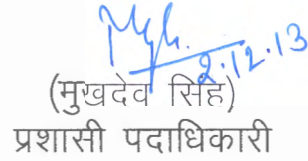 2.12.13
(मुखदेव सिंह)
प्रशासी पदाधिकारी